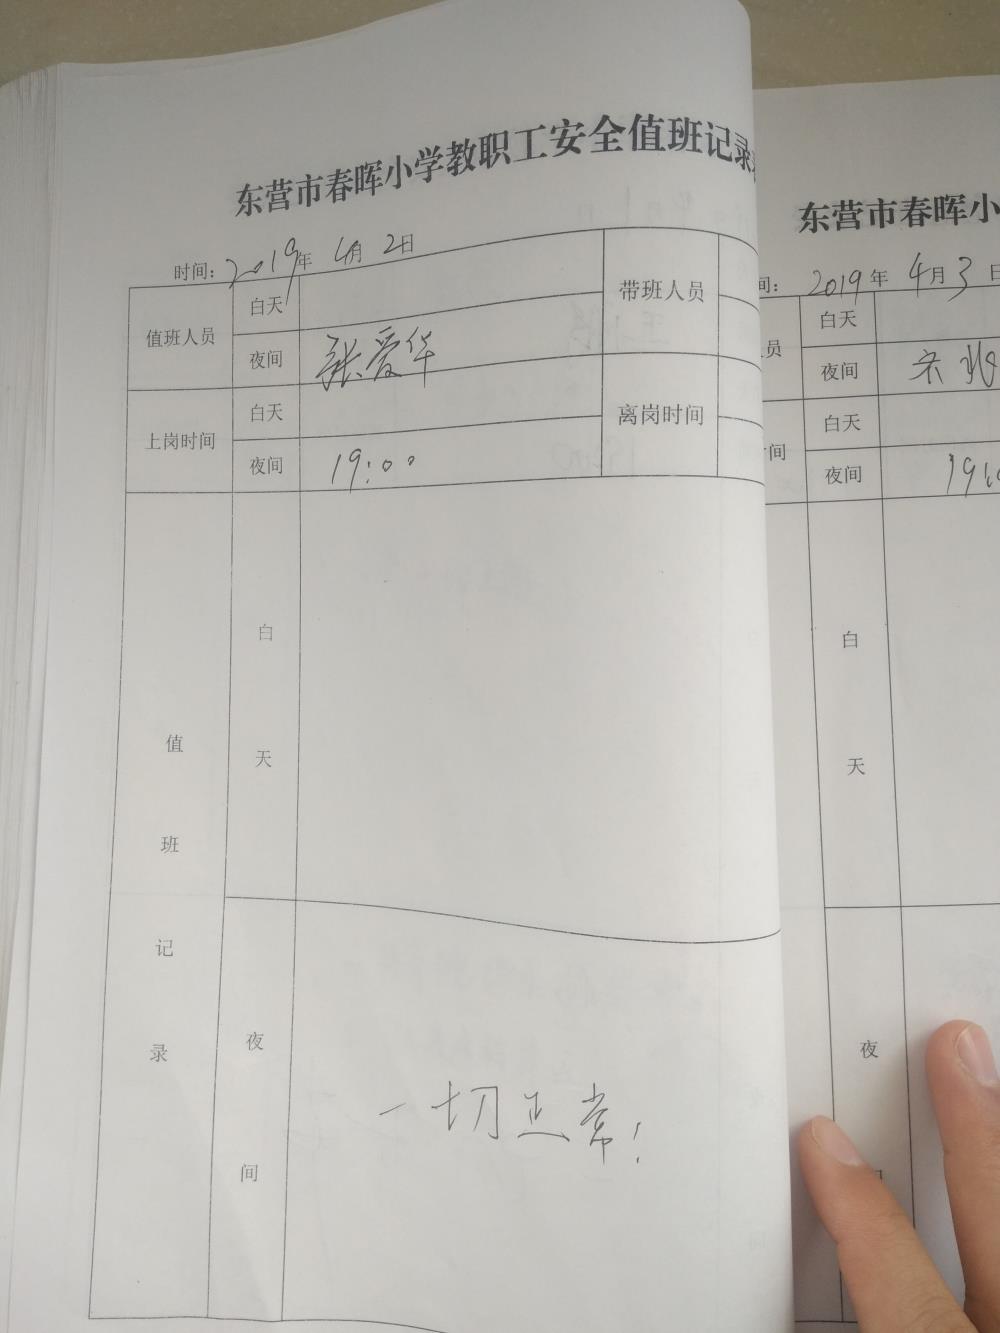 东营市春晖小学教职工安全值班记录
时间: 2019年 4月 2日
值班人员 白天 带班人员
夜间 张爱华
上岗时间 白天 离岗时间
夜间 19:00
值班记录
白天
夜间
一切正常!
东营市春晖小
间: 2019年 4月3日
员 白天
夜间 宋
时间 白天
夜间 19:0
白天
夜